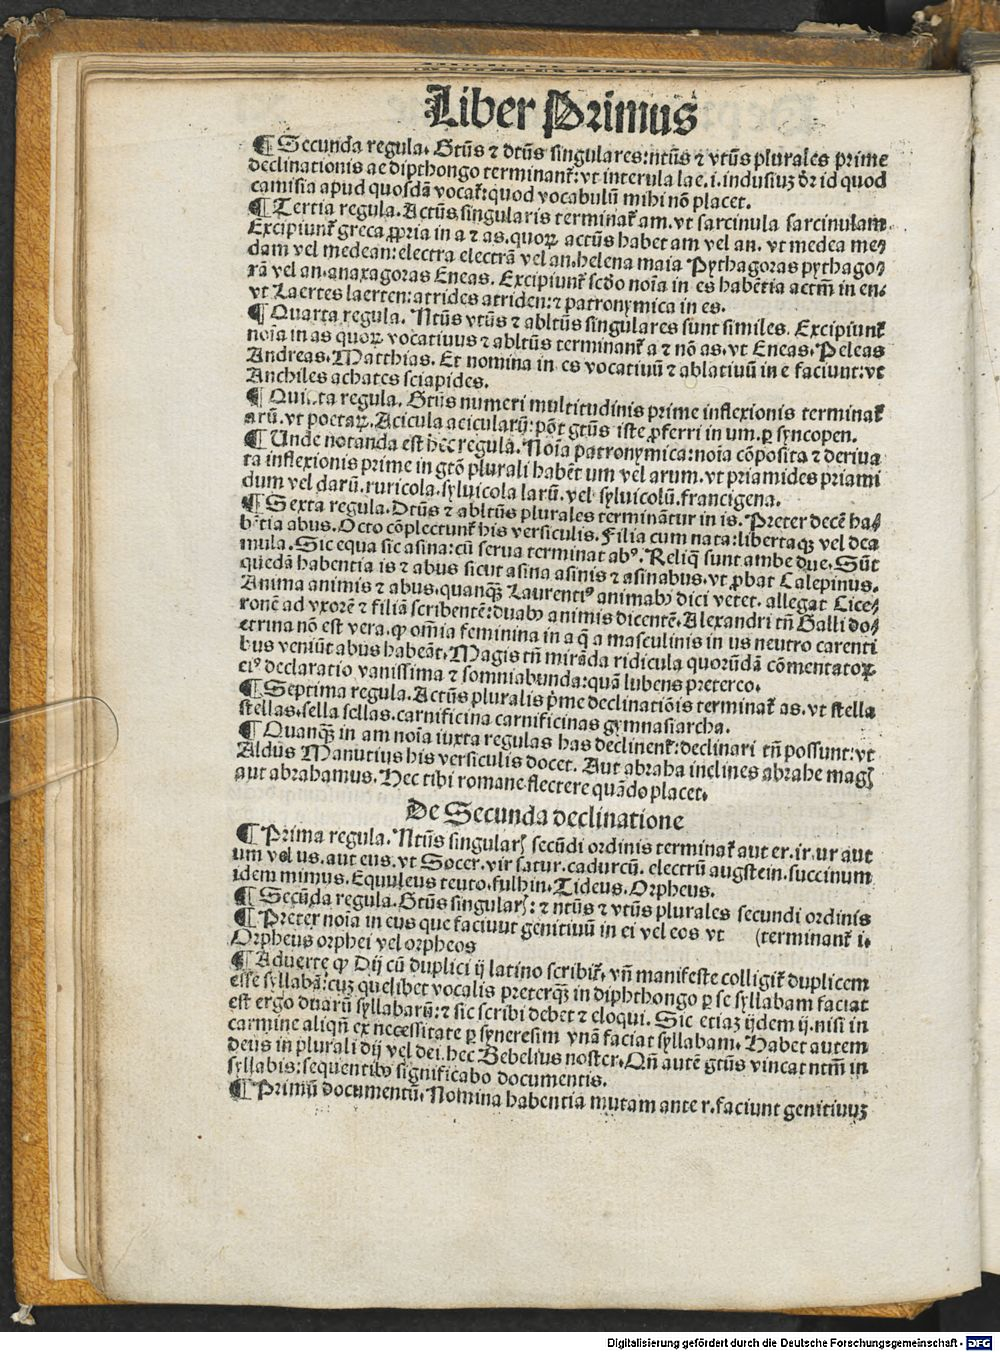 Liber Primus
¶ Secunda regula. Gtũs ⁊ dtũs singulares: ntũs ⁊ vtũs plurales prime
declinationis ae dipthongo terminant᷑: vt interula lae. i. indusiuꝫ d᷑r id quod
camisia apud quosdã vocat᷑: quod vocabulũ mihi nõ placet.
¶ Tertia regula. Actũs singularis terminat᷑ am. vt sarcinula sarcinulam
Excipiunt᷑ greca ꝓpria in a ⁊ as. quoꝝ actũs habet am vel an. vt medea me⸗
dam vel medean: electra electrã vel an. helena maia Pythagoras pythago⸗
rã vel an. anaxagoras Eneas. Excipiunt᷑ scdo noĩa in es habẽtia actm̃ in en.
vt Laertes laerten: atrides atriden: ⁊ patronymica in es.
¶ Quarta regula. Ntũs vtũs ⁊ abltũs singulares sunt similes. Excipiunt᷑
noĩa in as quoꝝ vocatiuus ⁊ abltũs terminant᷑ a ⁊ nõ as. vt Eneas. Peleas
Andreas. Matthias. Et nomina in es vocatiuũ ⁊ ablatiuũ in e faciunt: vt
Anchiles achates sciapides.
¶ Quinta regula. Gtũs numeri multitudinis prime inflexionis terminat᷑
arũ. vt poetaꝝ. Acicula aciculaꝝ: põt gtũs iste ꝓferri in um. ꝑ syncopen.
¶ Unde notanda est hec regula. Noĩa patronymica: noĩa cõposita ⁊ deriua
ta inflexionis prime in gtõ plurali habẽt um vel arum. vt priamides priami
dum vel darũ. ruricola. syluicola larũ. vel syluicolũ. francigena.
¶ Sexta regula. Dtũs ⁊ abltũs plurales terminãtur in is. Preter decẽ ha⸗
bẽtia abus. Octo cõplectunt᷑ his versiculis. Filia cum nata: libertaqꝫ vel dea
mula. Sic equa sic asina: cũ serua terminat abꝰ. Reliq̃ sunt ambe due. Sũt
quedã habentia is ⁊ abus sicut asina asinis ⁊ asinabus. vt ꝓbat Calepinus.
Anima animis ⁊ abus. quanqꝫ̃ Laurentiꝰ animabꝫ dici vetet. allegat Cice⸗
ronẽ ad vxorẽ ⁊ filiã scribentẽ: duabꝫ animis dicentẽ. Alexandri tñ Galli do⸗
ctrina nõ est vera. ꝙ om̃ia feminina in a q̃ a masculinis in us neutro carenti
bus veniũt abus habeãt. Magis tñ mirãda ridicula quorũdã cõmentatoꝝ
eiꝰ declaratio vanissima ⁊ somniabunda: quã lubens pretereo.
¶ Septima regula. Actũs pluralis p̃me declinatiõis terminat᷑ as. vt stella
stellas. sella sellas. carnificina carnificinas gymnasiarcha.
¶ Quanqꝫ̃ in am noĩa iuxta regulas has declinent᷑: declinari tñ possunt: vt
Aldus Manutius his versiculis docet. Aut abraha inclines abrahe magꝭ
aut abrahamus. Hec tibi romane flectere quãdo placet.
De Secunda declinatione
¶ Prima regula. Ntũs singularꝭ secũdi ordinis terminat᷑ aut er. ir. ur aut
um vel us. aut eus. vt Socer. vir satur. cadurcũ. electrũ augstein. succinum
idem minus. Equuleus teuto. fulhin. Tideus. Orpheus.
¶ Secũda regula. Gtũs singularꝭ: ⁊ ntũs ⁊ vtũs plurales secundi ordinis
¶ Preter noĩa in eus que faciunt genitiuũ in ei vel eos vt (terminant᷑ i.
Orpheus orphei vel orpheos
¶ Aduerte ꝙ Dij cũ duplici ij latino scribit᷑. vñ manifeste colligit᷑ duplicem
esse syllabã: cuꝫ quelibet vocalis preterqꝫ̃ in diphthongo ꝑ se syllabam faciat
est ergo duarũ syllabarũ: ⁊ sic scribi debet ⁊ eloqui. Sic etiaꝫ ijdem ij. nisi in
carmine aliqñ ex necessitate ꝑ syneresim vnã faciat syllabam. Habet autem
deus in plurali dij vel dei. hec Bebelius noster. Qñ autẽ gtũs vincat ntm̃ in
syllabis: sequentibꝫ significabo documentis.
¶ Primũ documentũ. Nomina habentia mutam ante r. faciunt genitiuuꝫ
Digitalisierung gefördert durch die Deutsche Forschungsgemeinschaft - DFG